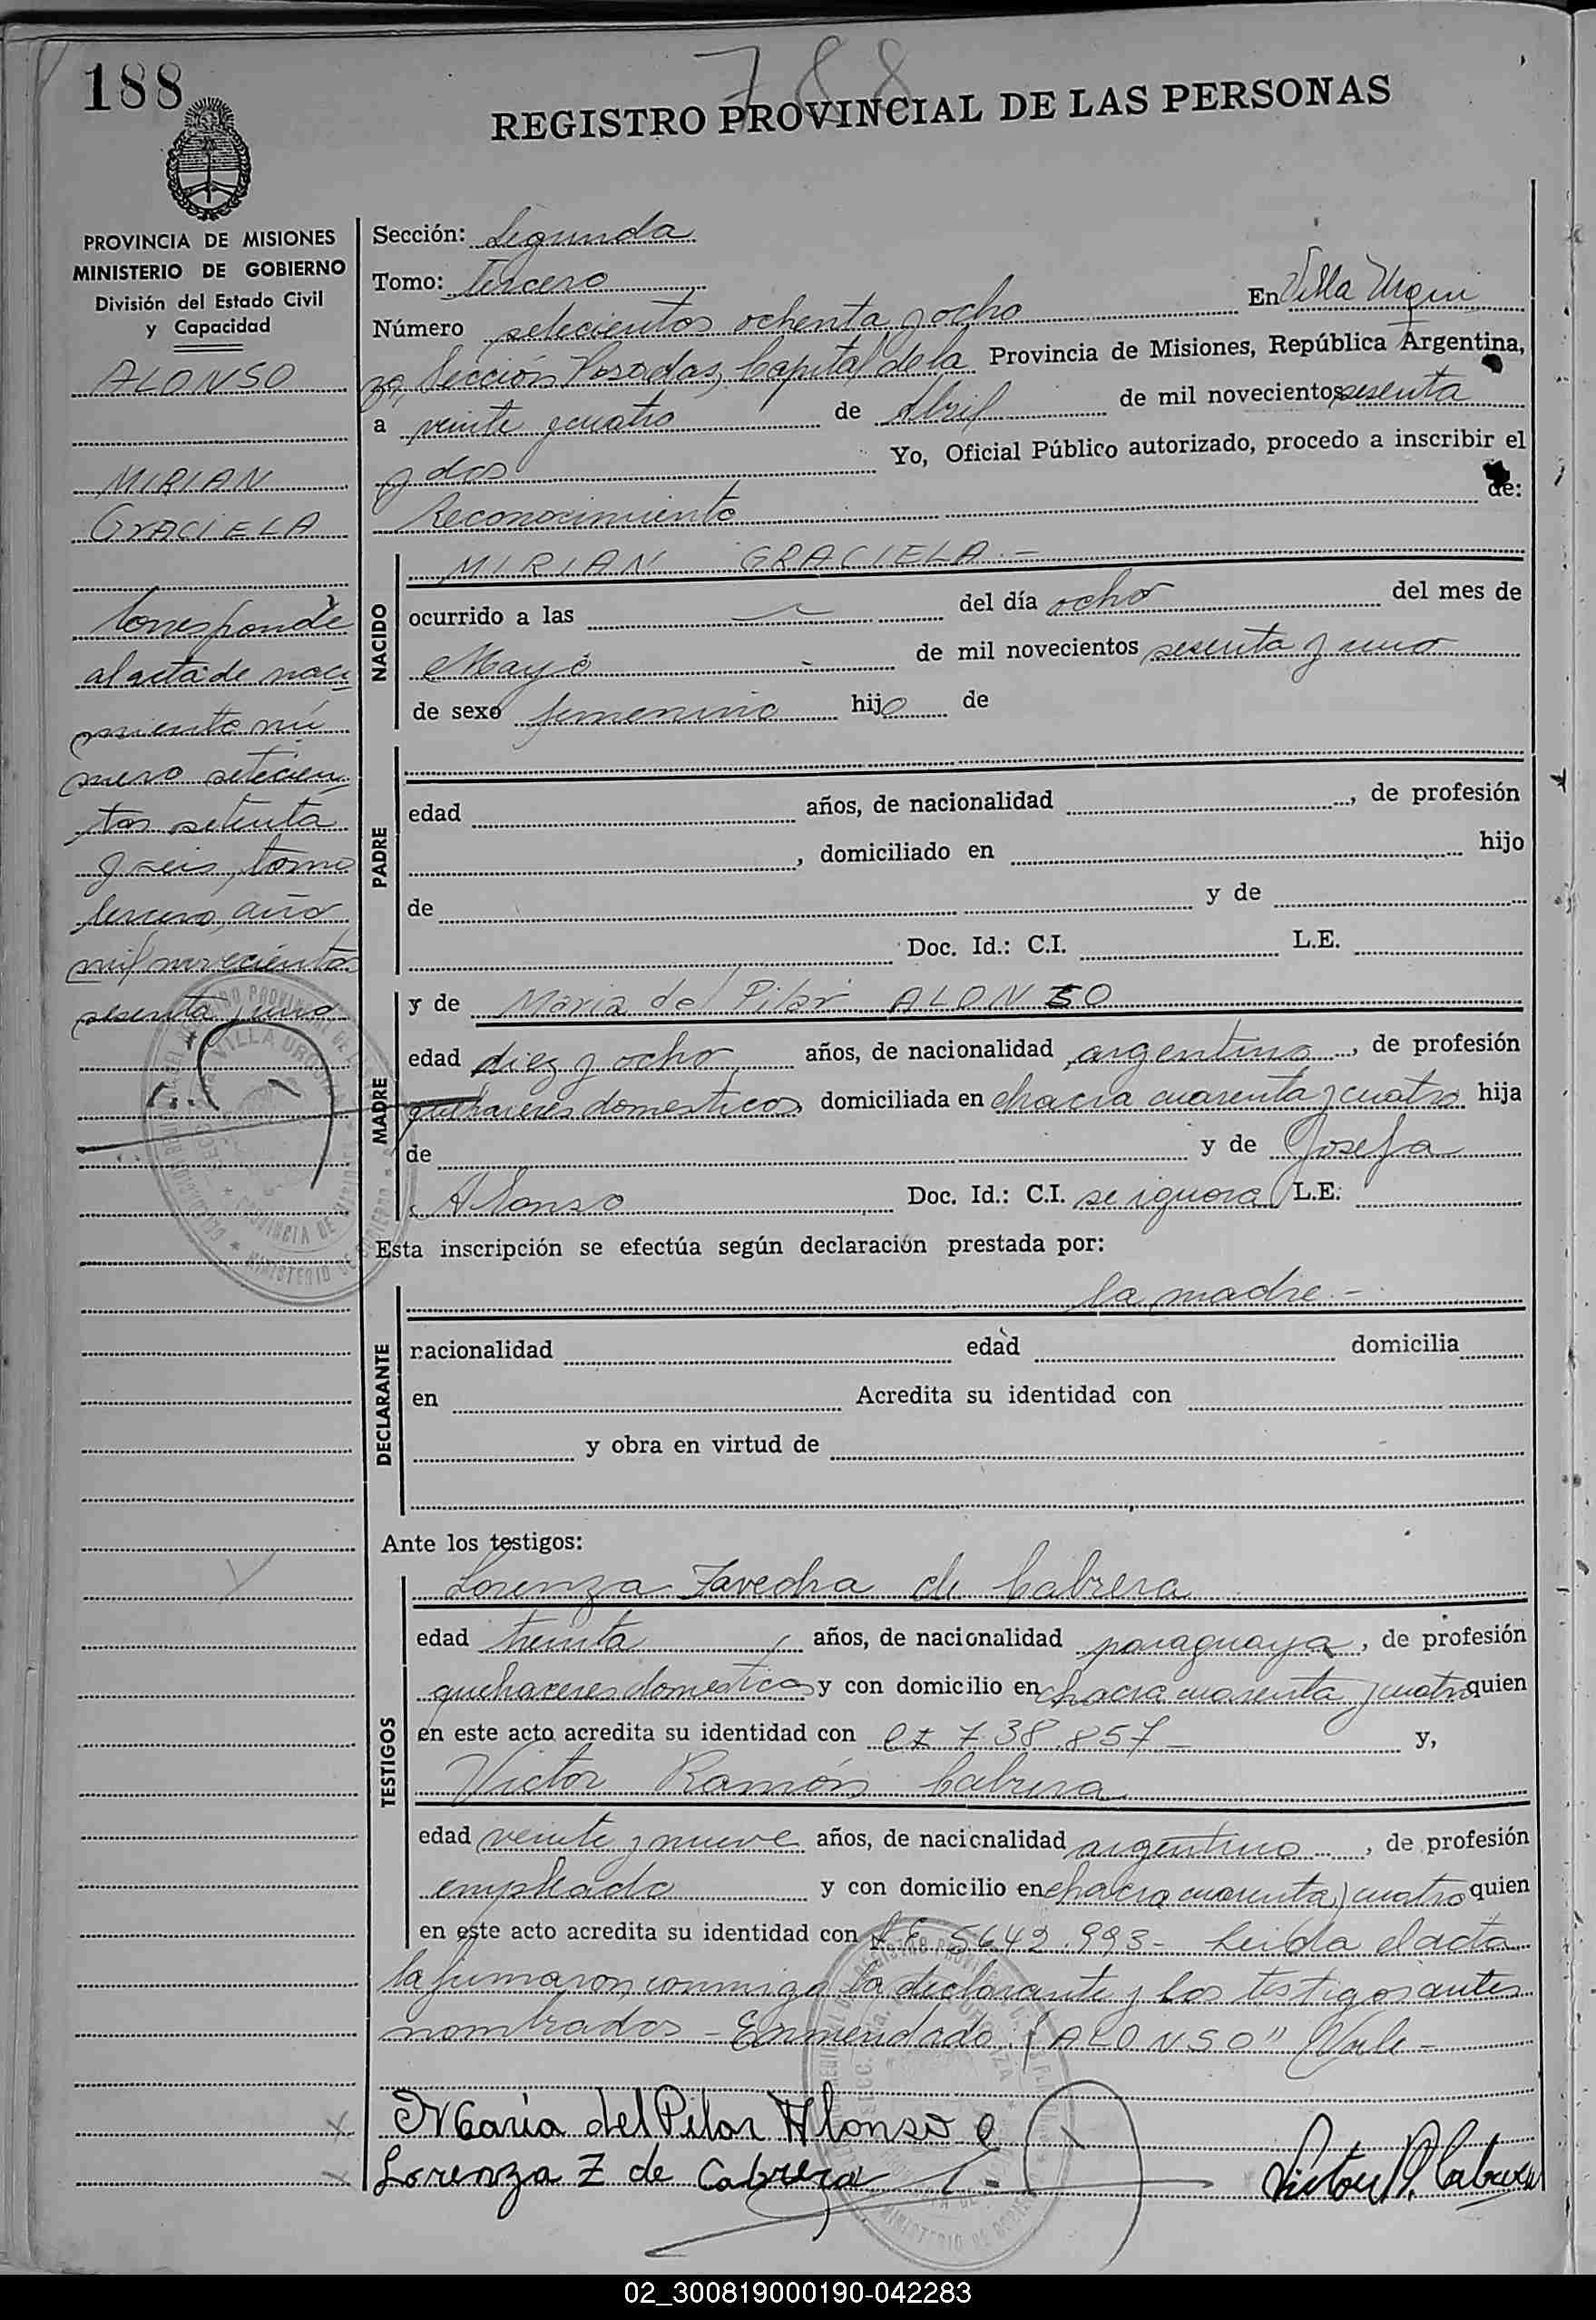 188
788
REGISTRO PROVINCIAL DE LAS PERSONAS
PROVINCIA DE MISIONES
MINISTERIO DE GOBIERNO
División del Estado Civil
y Capacidad
ALONSO
MIRIAN
GRACIELA
Corresponde
al acta de naci
miento nú
mero setecien
tos setenta
y seis, tomo
tercero, año
mil novecientos
sesenta y uno
Sección: Segunda
Tomo: Tercero
En Villa Urqui
Número setecientos ochenta y ocho
za, Sección Posadas, Capital de la Provincia de Misiones, República Argentina,
a veinte y cuatro de Abril de mil novecientos sesenta
y dos Yo, Oficial Público autorizado, procedo a inscribir el
Reconocimiento de:
NACIDO
MIRIAN GRACIELA.=
ocurrido a las del día ocho del mes de
Mayo de mil novecientos sesenta y uno
de sexo femenino hijo de
PADRE
edad años, de nacionalidad , de profesión
, domiciliado en hijo
de y de
Doc. Id.: C.I. L.E.
MADRE
y de Maria del Pilar ALONSO
edad diez y ocho años, de nacionalidad argentina, de profesión
quehaceres domesticos domiciliada en chacra cuarenta y cuatro hija
de y de Josefa
Alonso Doc. Id.: C.I. se ignora L.E.
Esta inscripción se efectúa según declaración prestada por:
DECLARANTE
la madre.-
nacionalidad edad domicilia
en Acredita su identidad con
y obra en virtud de
Ante los testigos:
TESTIGOS
Lorenza Zavedra de Cabrera
edad treinta años, de nacionalidad paraguaya, de profesión
quehaceres domesticos y con domicilio en chacra cuarenta y cuatro quien
en este acto acredita su identidad con 738.857 - y,
Victor Ramón Cabrera
edad veinte y nueve años, de nacionalidad argentino, de profesión
empleado y con domicilio en chacra cuarenta y cuatro quien
en este acto acredita su identidad con L.E. 5642.993- Leida el acta
la firmaron conmigo la declarante y los testigos antes
nombrados - Enmendado: "ALONSO" Vale -
Maria del Pilar Alonso
Lorenza Z de Cabrera
Victor R. Cabrera
02_300819000190-042283